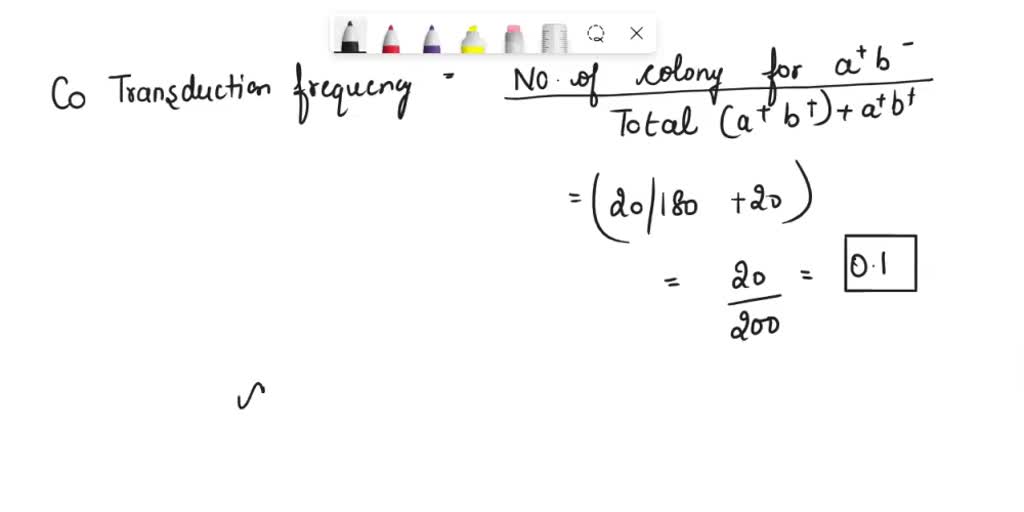 Co Transduction frequency = No. of colony for a⁺ b⁻
Total (a⁺ b⁺) + a⁺ b⁺
= (20/180 +20)
= 20 = 0.1
200